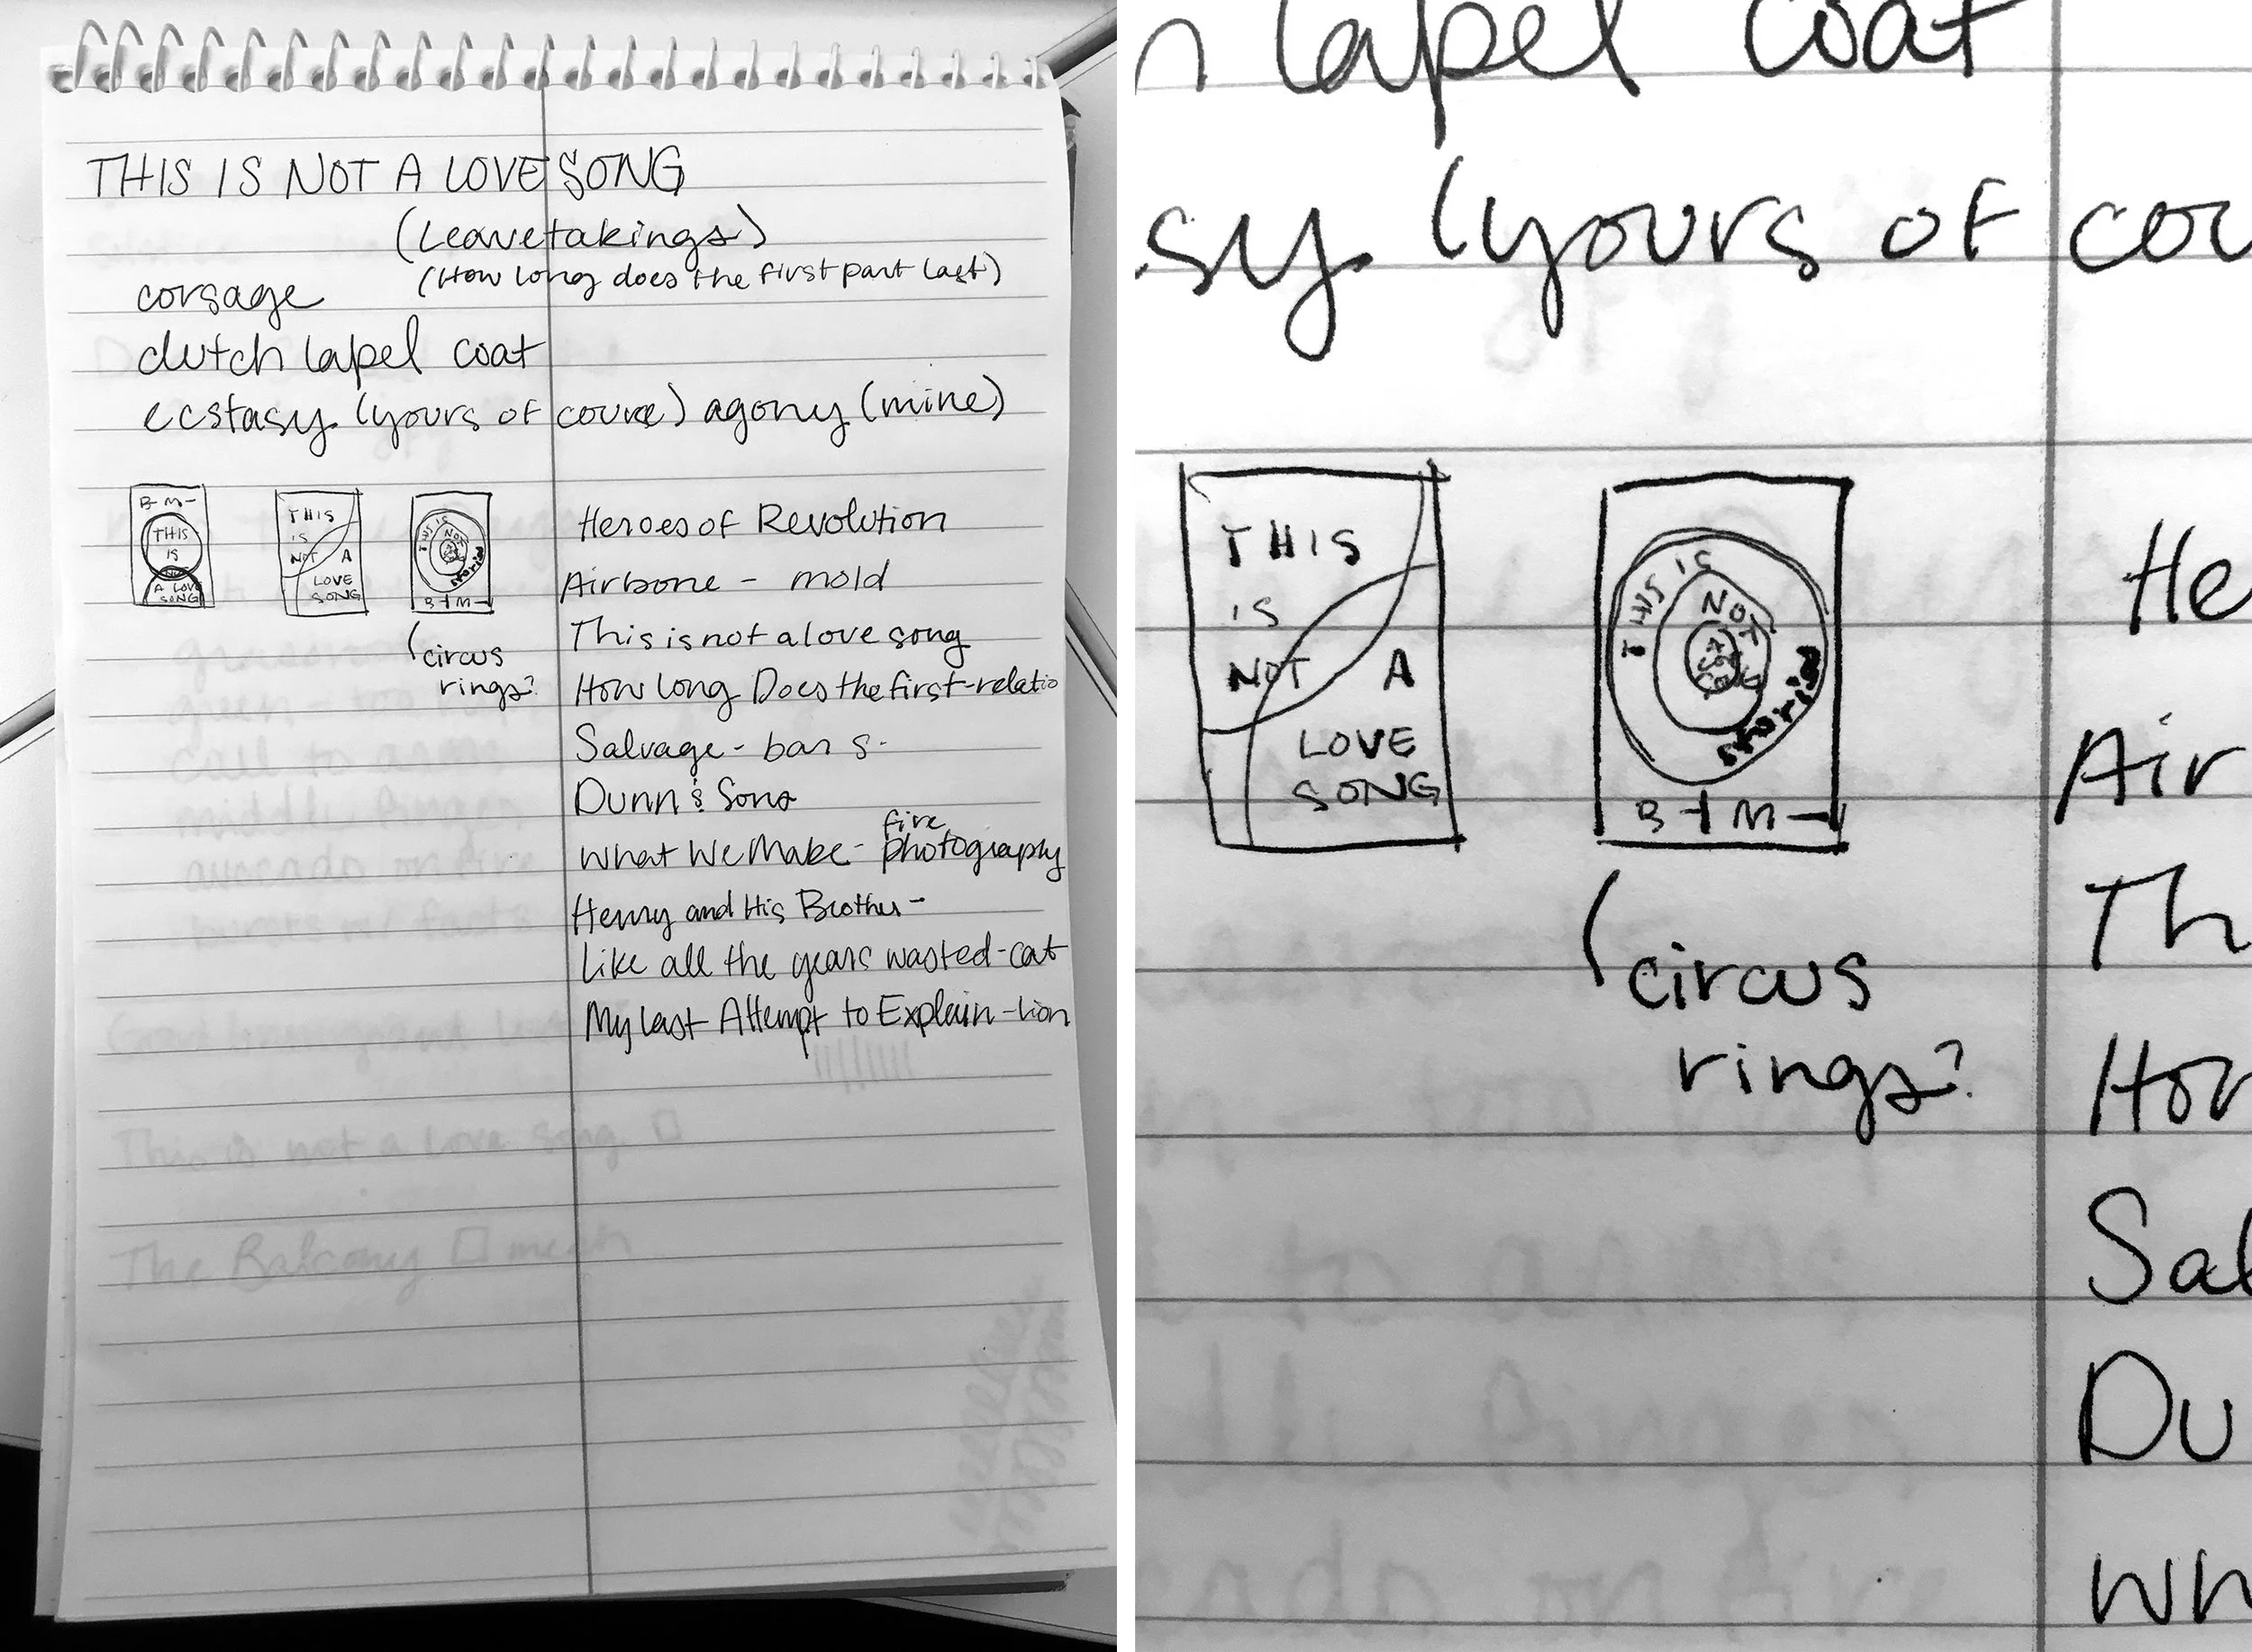 THIS IS NOT A LOVE SONG
(Leavetakings)
(How long does the first part last)
corsage
clutch lapel coat
ecstasy (yours of course) agony (mine)
B- M-
THIS
IS
NOT
A LOVE
SONG
THIS
IS
NOT A
LOVE
SONG
THIS IS
NOT
stories
B- M-
(circus
rings?
Heroes of Revolution
Airbone - mold
This is not a love song
How long Does the first-relatio
Salvage - bar s.
Dunn & Sons
fire
What We Make - photography
Henry and His Brother -
Like all the years wasted - cat
My last Attempt to Explain - lion
This is not a love song
The Balcony
lapel coat
sy. (yours of cou
THIS
IS
NOT A
LOVE
SONG
THIS IS
NOT
A
SONG
stories
B M
(circus
rings?
He
Air
Th
How
Sal
Du
Wh